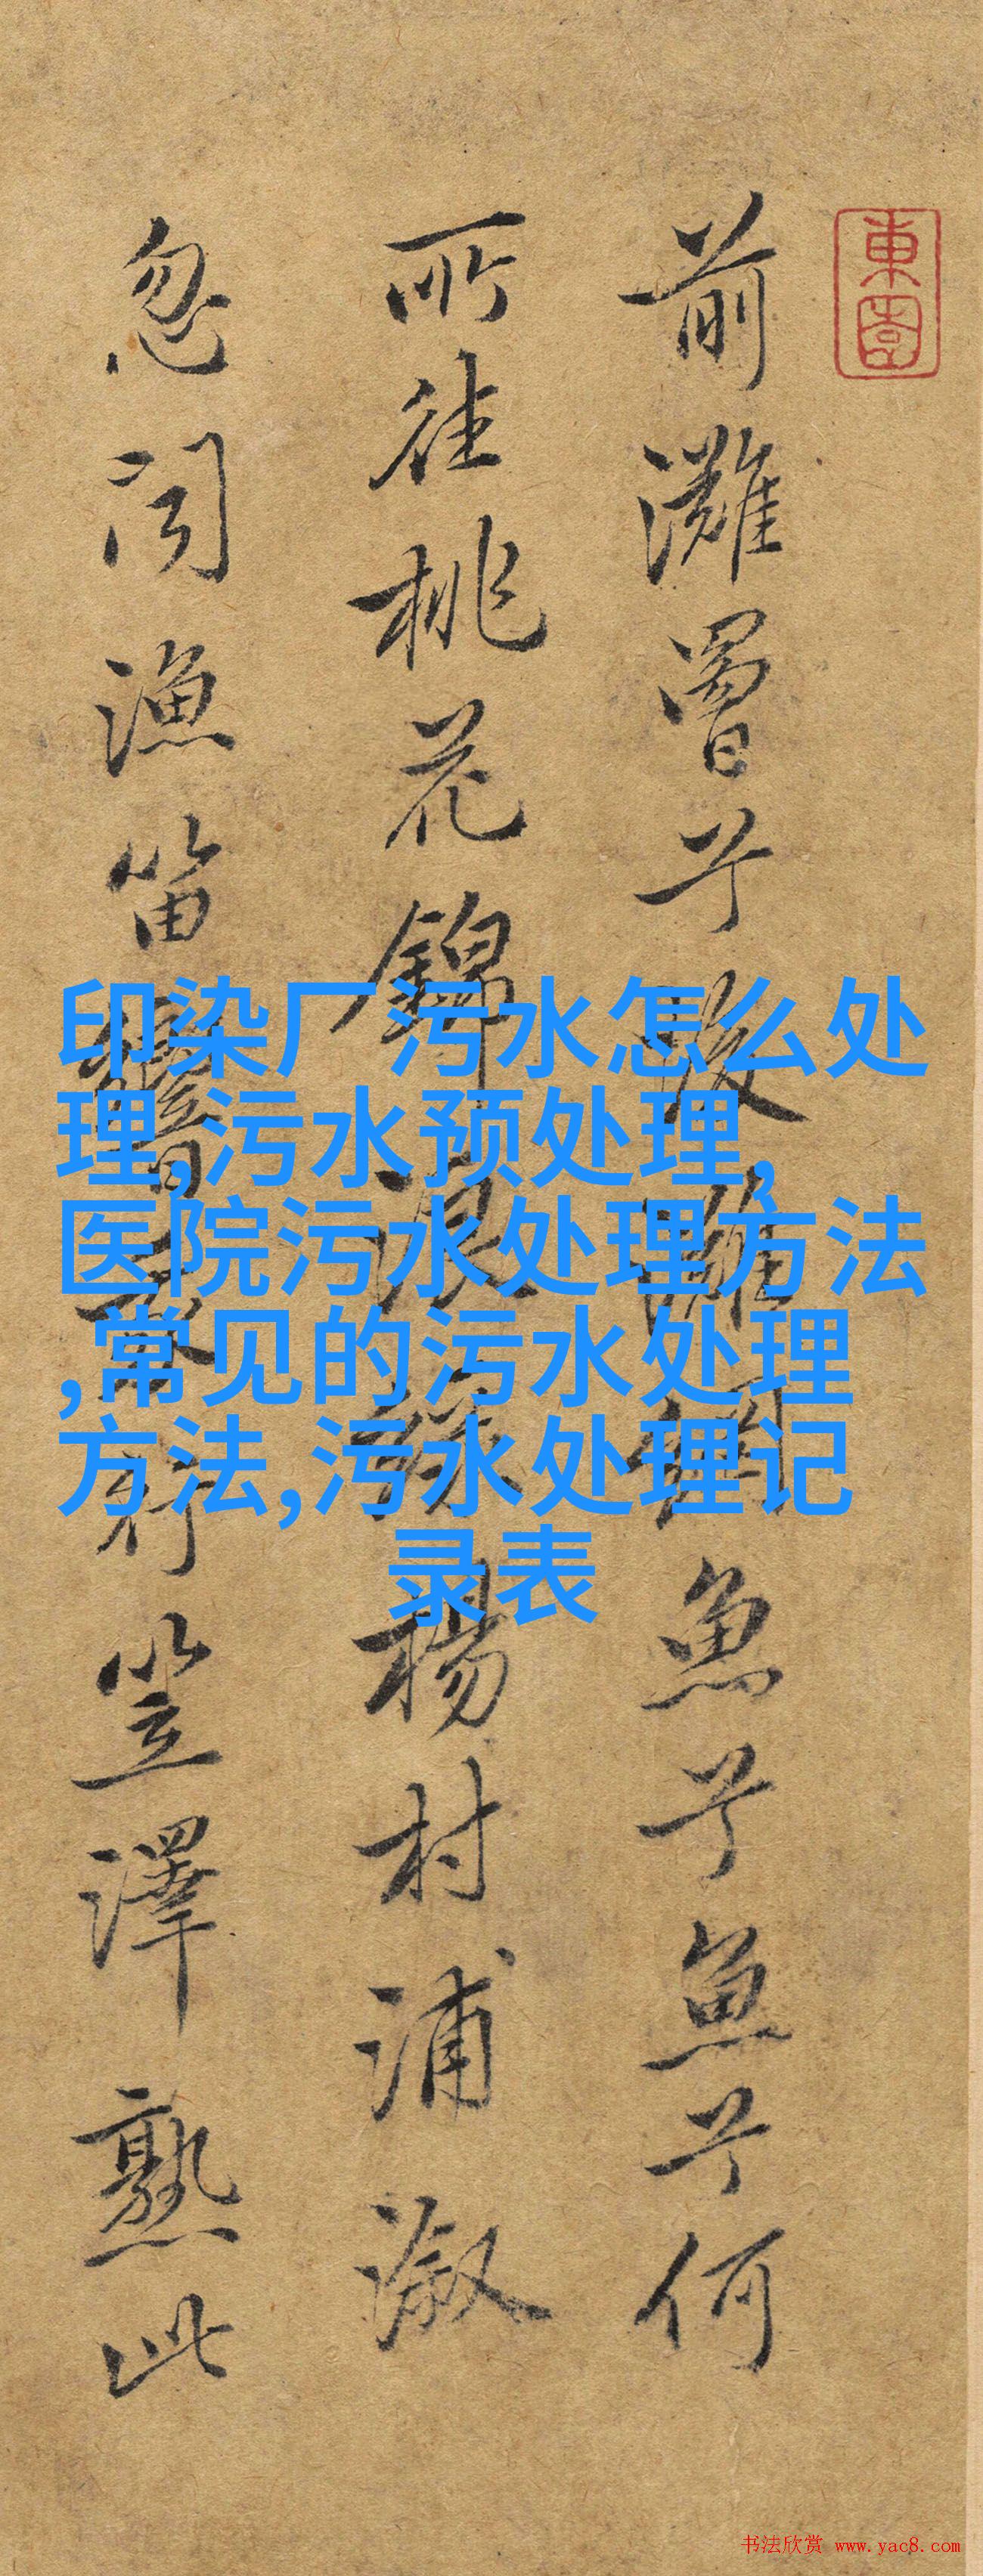 東園
前灘罾兮後灘網魚兮魚兮何
所往桃花錦浪綠楊村浦漵
忽聞漁笛響行笠澤熟此
印染厂污水怎么处
理,污水预处理,
医院污水处理方法
,常见的污水处理
方法,污水处理记
录表
书法欣赏 www.yac8.com